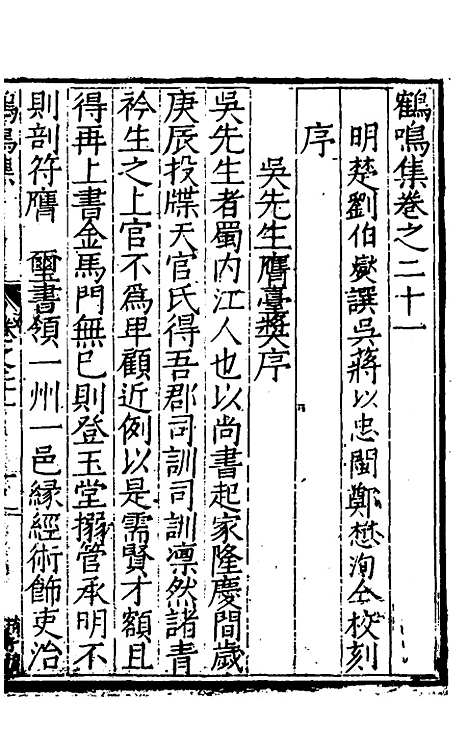 鶴鳴集卷之二十一
明楚劉伯燮譔吳蔣以忠閩鄭懋洵仝校刻
序
吳先生膺臺奬序
吳先生者蜀內江人也以尚書起家隆慶間歲
庚辰投牒天官氏得吾郡司訓司訓凛然諸青
衿生之上官不爲卑顧近例以是需賢才額且
得再上書金馬門無已則登玉堂搦管承明不
則剖符膺　璽書領一州一邑緣經術飾吏治